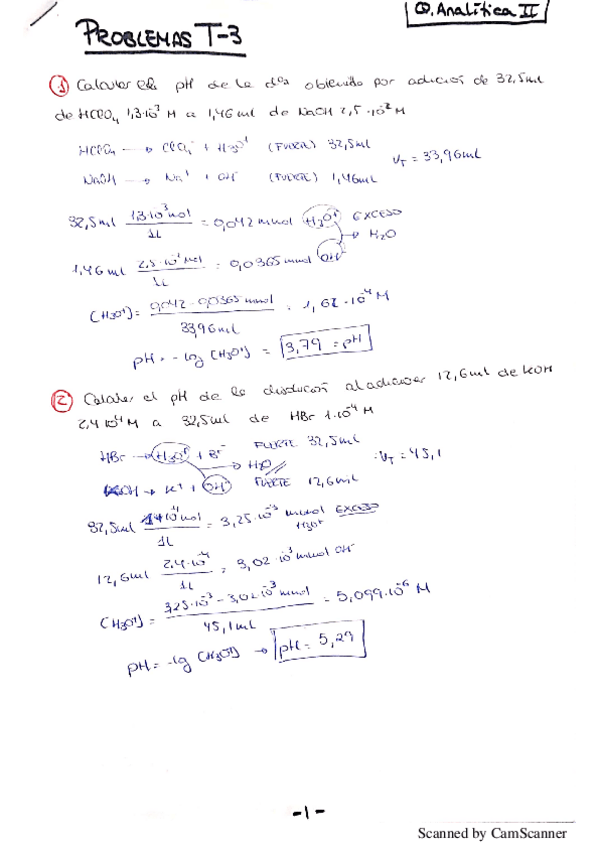 Q. Analítica II
PROBLEMAS T-3
① Calcular el pH de la dón obtenida por adición de 32,5ml
de HClO4 1,3·10⁻³ M a 1,46 ml de NaOH 2,5·10⁻² M
HClO4 → ClO4⁻ + H3O⁺ (FUERTE) 32,5ml
VT = 33,96ml
NaOH → Na⁺ + OH⁻ (FUERTE) 1,46ml
32,5ml 1,3·10⁻³mol / 1L = 0,042 mmol H3O⁺ EXCESO
→ H2O
1,46ml 2,5·10⁻² mol / 1L = 0,0365 mmol OH⁻
[H3O⁺] = 0,042 - 0,0365 mmol / 33,96ml = 1,62·10⁻⁴ M
pH = -log [H3O⁺] = 3,79 = pH
② Calcular el pH de la disolución al adicionar 12,6ml de KOH
2,4·10⁻⁴ M a 32,5ml de HBr 1·10⁻⁴ M
HBr → H3O⁺ + Br⁻ FUERTE 32,5ml
VT = 45,1
→ H2O
KOH → K⁺ + OH⁻ FUERTE 12,6ml
32,5ml 1·10⁻⁴mol / 1L = 3,25·10⁻³ mmol H3O⁺ EXCESO
12,6ml 2,4·10⁻⁴ / 1L = 3,02·10⁻³ mmol OH⁻
[H3O⁺] = 3,25·10⁻³ - 3,02·10⁻³ mmol / 45,1mL = 5,099·10⁻⁶ M
pH = -log [H3O⁺] → pH = 5,29
-1-
Scanned by CamScanner